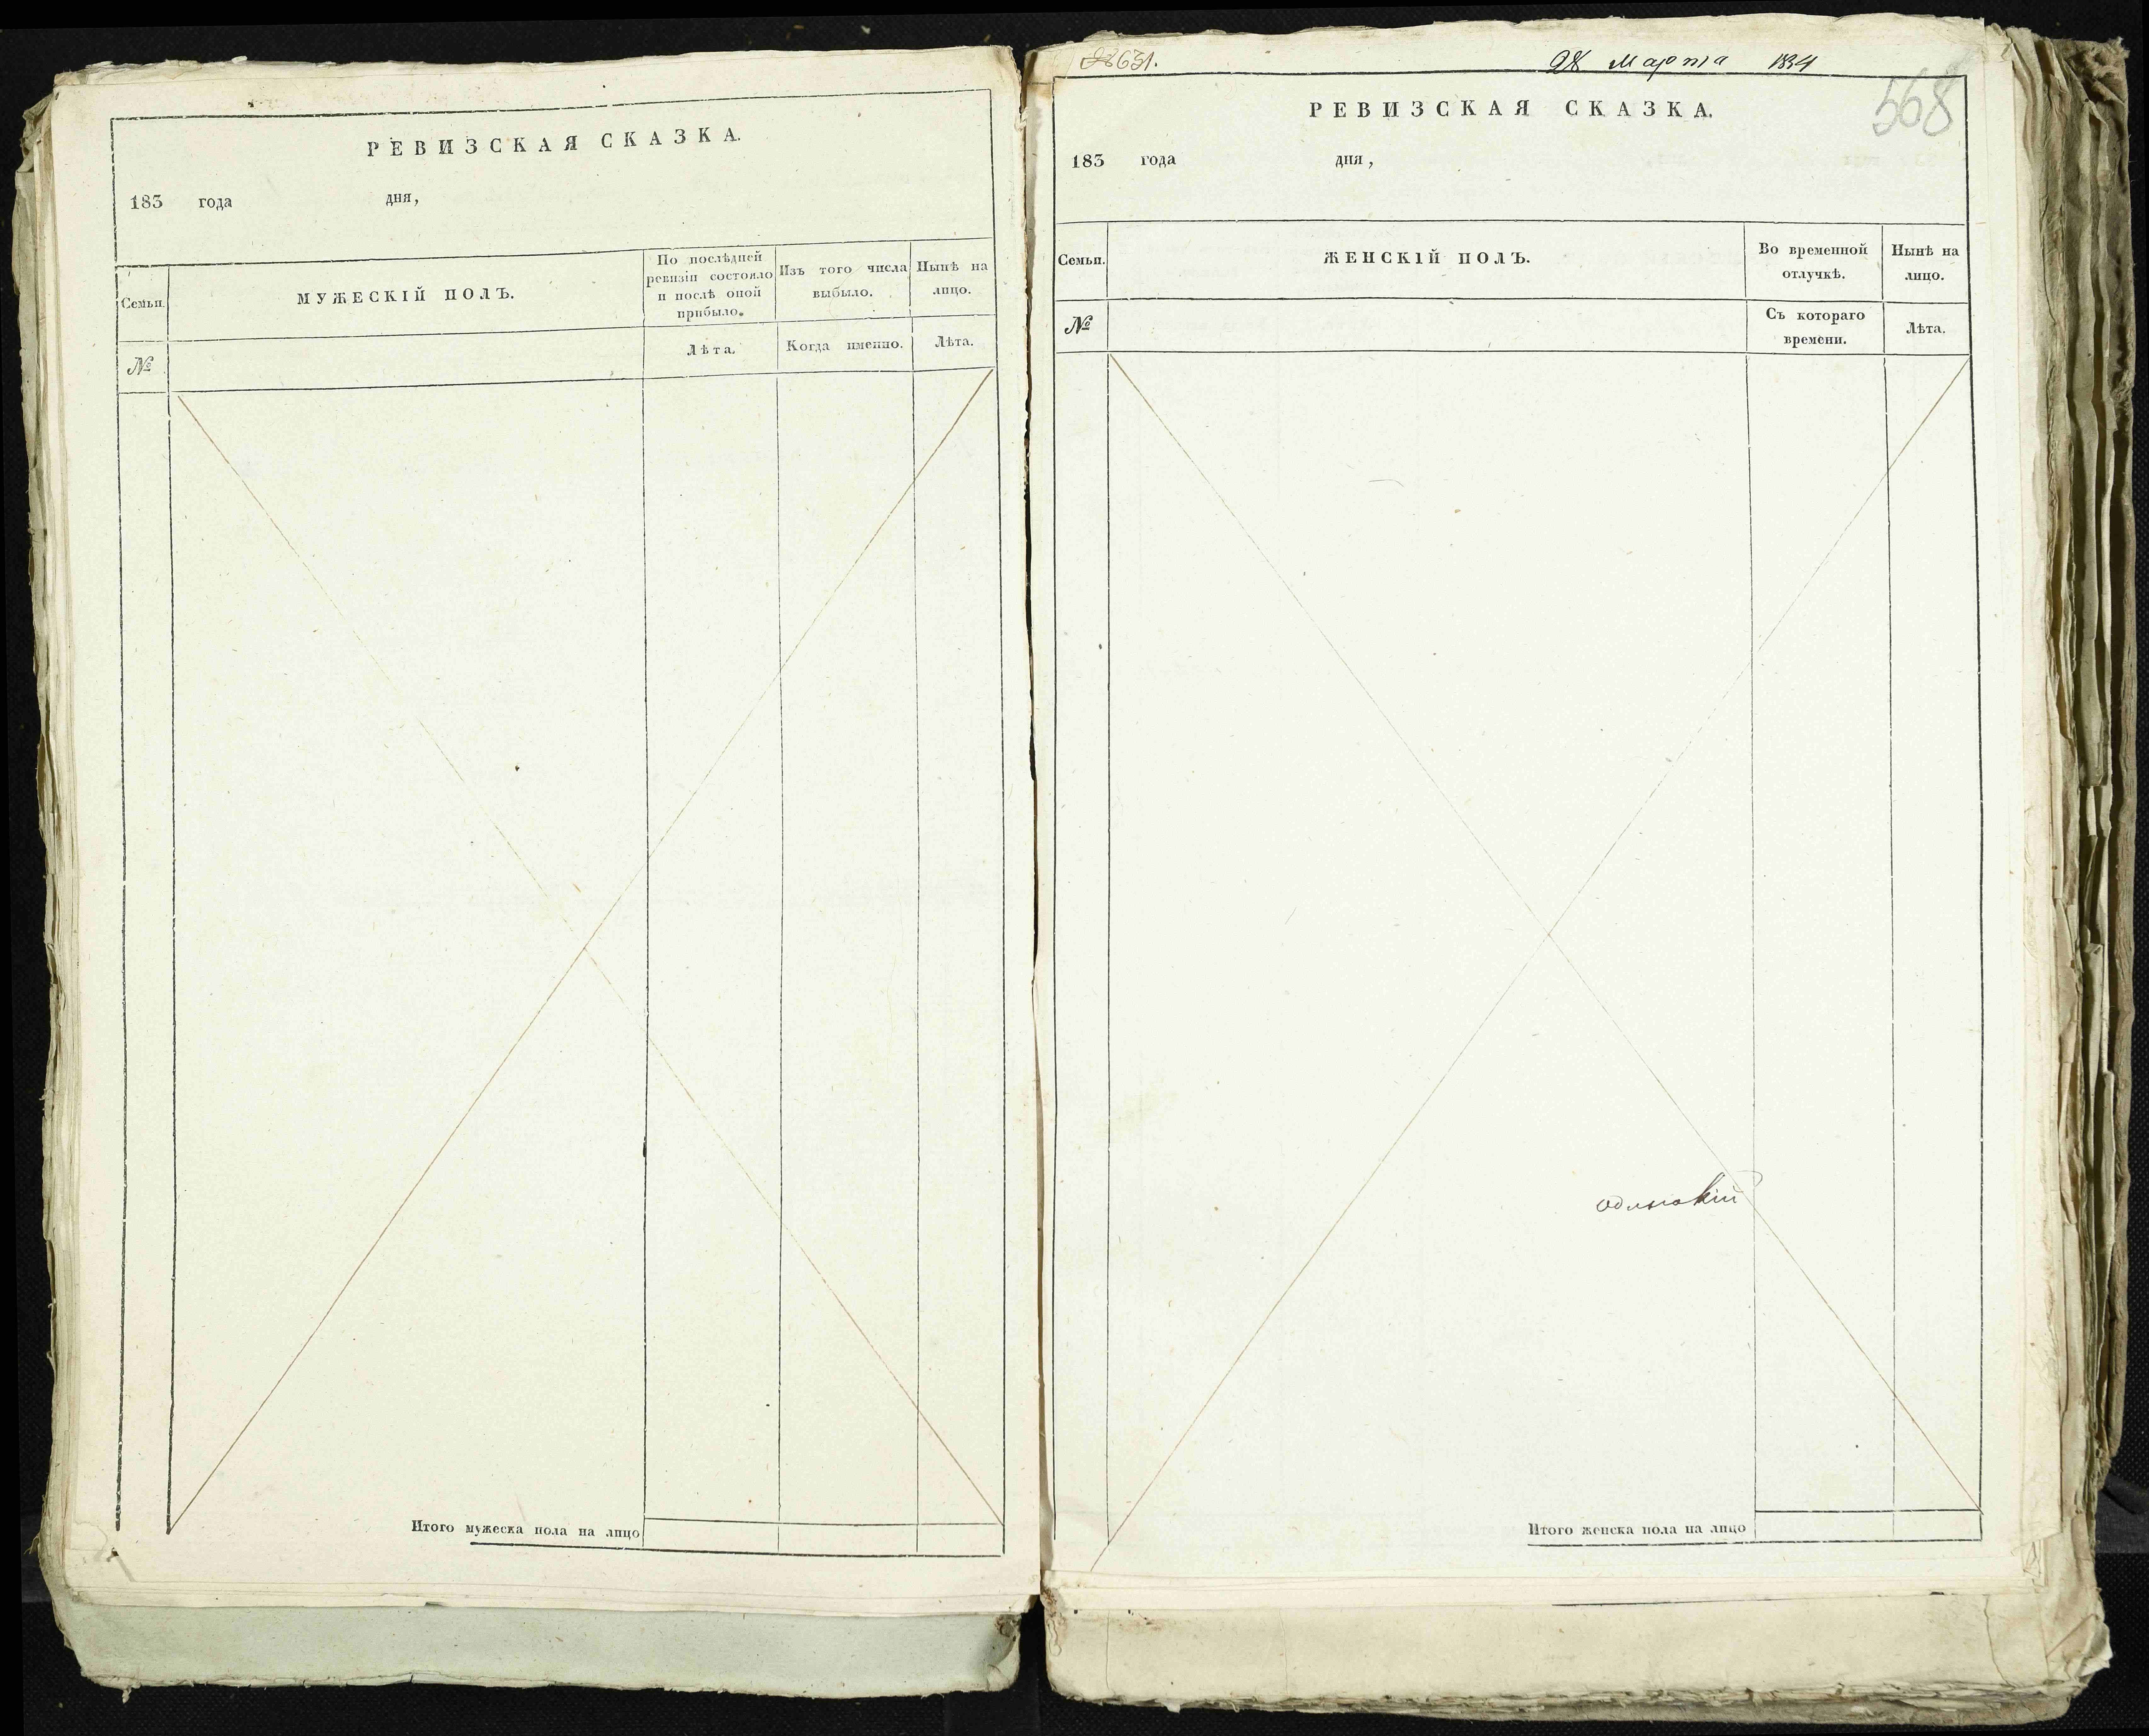 РЕВИЗСКАЯ СКАЗКА.
183 года дня,
Семьи.
МУЖЕСКІЙ ПОЛЪ.
По послѣдней ревизіи состояло и послѣ оной прибыло.
Изъ того числа выбыло.
Нынѣ на лицо.
№
Лѣта.
Когда именно.
Лѣта.
Итого мужеска пола на лицо
28 Марта 1834
568
РЕВИЗСКАЯ СКАЗКА.
183 года дня,
Семьи.
ЖЕНСКІЙ ПОЛЪ.
Во временной отлучкѣ.
Нынѣ на лицо.
№
Съ котораго времени.
Лѣта.
одинокій
Итого женска пола на лицо